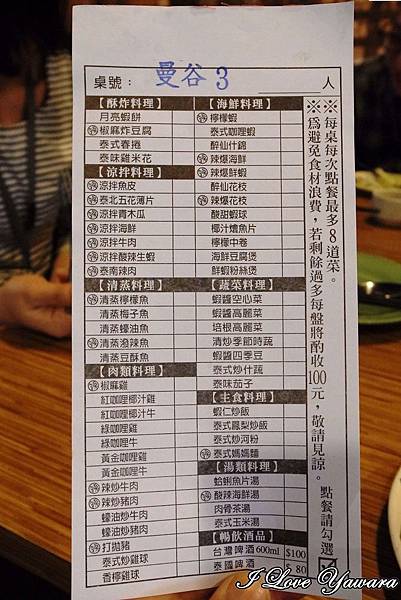 桌號：曼谷 3 ＿＿＿人
【酥炸料理】
月亮蝦餅
椒麻炸豆腐
泰式春捲
泰味雞米花
【涼拌料理】
涼拌魚皮
泰北五花薄片
涼拌青木瓜
涼拌海鮮
涼拌牛肉
涼拌酸辣生蝦
泰南辣肉
【清蒸料理】
清蒸檸檬魚
清蒸梅子魚
清蒸蠔油魚
清蒸潑辣魚
清蒸豆酥魚
【肉類料理】
椒麻雞
紅咖哩椰汁雞
紅咖哩椰汁牛
綠咖哩雞
綠咖哩牛
黃金咖哩雞
黃金咖哩牛
辣炒牛肉
辣炒豬肉
蠔油炒牛肉
蠔油炒豬肉
打拋豬
泰式炒雞球
香檸雞球
【海鮮料理】
檸檬蝦
泰式咖哩蝦
醉仙什錦
辣爆海鮮
辣爆鮮蝦
醉仙花枝
辣爆花枝
酸甜蝦球
椰汁燴魚片
檸檬中卷
海鮮豆腐煲
鮮蝦粉絲煲
【蔬菜料理】
蝦醬空心菜
蝦醬高麗菜
培根高麗菜
清炒季節時蔬
蝦醬四季豆
泰式炒什蔬
泰味茄子
【主食料理】
蝦仁炒飯
泰式鳳梨炒飯
泰式炒河粉
泰式媽媽麵
【湯類料理】
蛤蜊魚片湯
酸辣海鮮湯
肉骨茶湯
泰式玉米湯
【暢飲酒品】
台灣啤酒 600ml $100
泰國啤酒 80
※每桌每次點餐最多8道菜。
※為避免食材浪費，若剩餘過多每盤將酌收100元，敬請見諒。
點餐請勾選☑
I Love Yawara